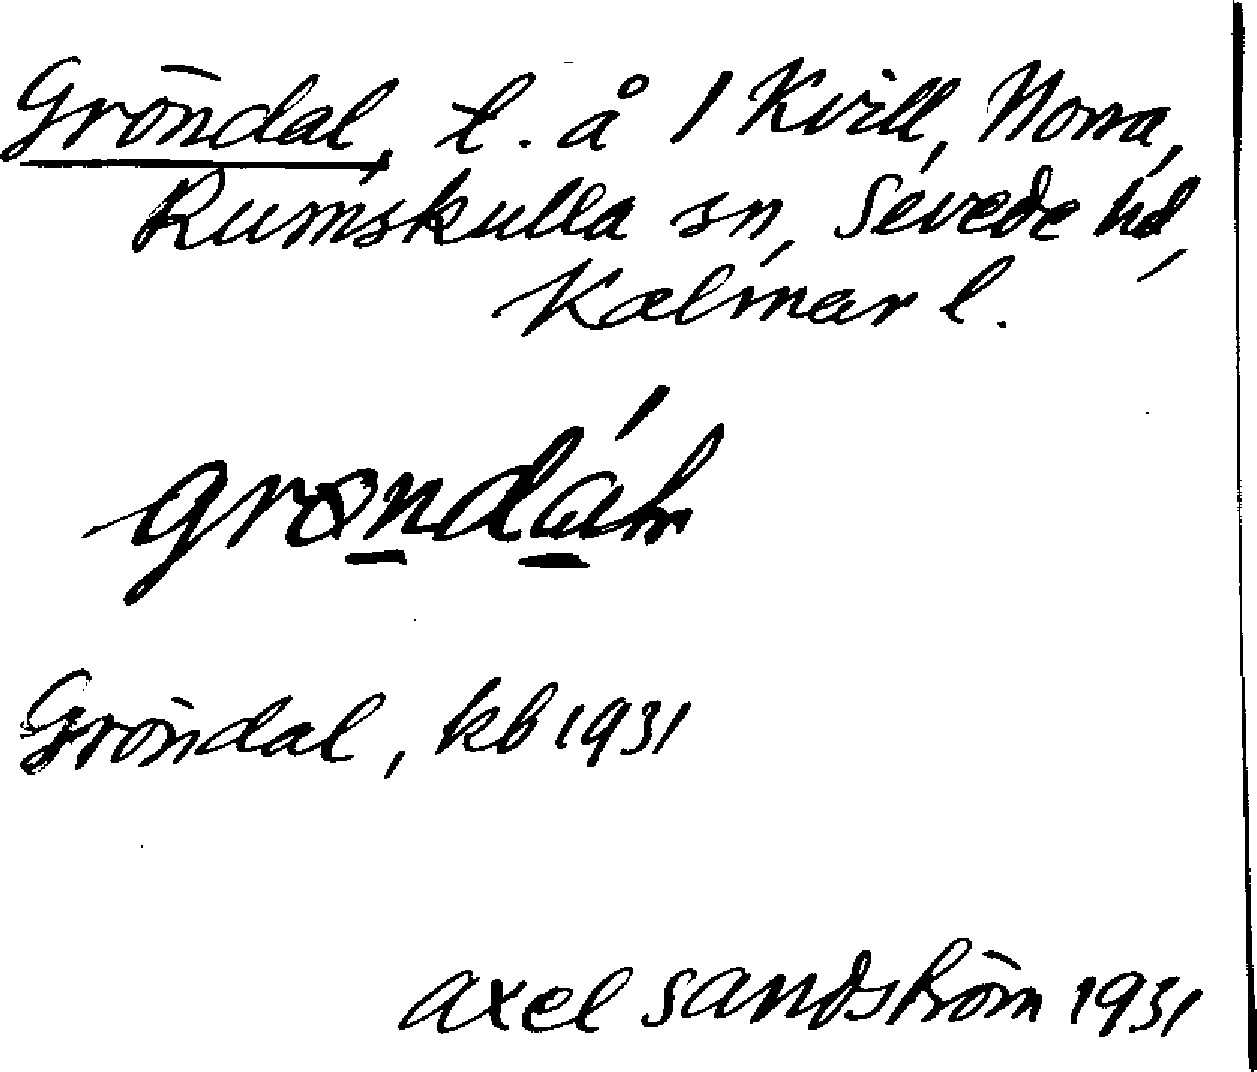 Gröndal, t. å 1 Kvill, Norra,
Rumskulla sn, Sevede hd,
Kalmar l.
Gröndal, kb 1931
Axel Sandström 1931